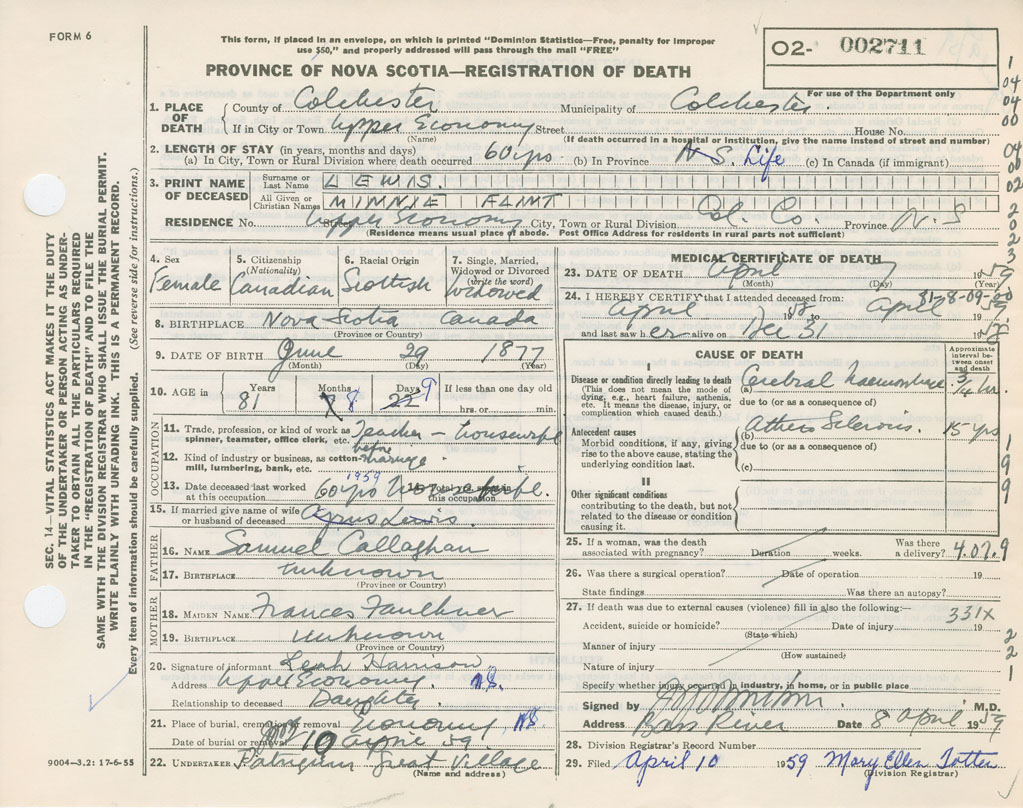 FORM 6
This form, if placed in an envelope, on which is printed "Dominion Statistics—Free, penalty for improper
use $50," and properly addressed will pass through the mail "FREE"
PROVINCE OF NOVA SCOTIA—REGISTRATION OF DEATH
O2- 002711
For use of the Department only
SEC. 14—VITAL STATISTICS ACT MAKES IT THE DUTY
OF THE UNDERTAKER OR PERSON ACTING AS UNDER-
TAKER TO OBTAIN ALL THE PARTICULARS REQUIRED
IN THE "REGISTRATION OF DEATH" AND TO FILE THE
SAME WITH THE DIVISION REGISTRAR WHO SHALL ISSUE THE BURIAL PERMIT.
WRITE PLAINLY WITH UNFADING INK. THIS IS A PERMANENT RECORD.
Every item of information should be carefully supplied. (See reverse side for instructions.)
1. PLACE OF DEATH County of Colchester Municipality of Colchester
If in City or Town Upper Economy Street House No.
(Name) (If death occurred in a hospital or institution, give the name instead of street and number)
2. LENGTH OF STAY (in years, months and days)
(a) In City, Town or Rural Division where death occurred 60 yrs (b) In Province N.S. Life (c) In Canada (if immigrant)
3. PRINT NAME OF DECEASED Surname or Last Name LEWIS.
All Given or Christian Names MINNIE FLINT
RESIDENCE No. Upper Economy City, Town or Rural Division Col. Co. Province N.S
(Residence means usual place of abode. Post Office Address for residents in rural parts not sufficient)
4. Sex Female
5. Citizenship (Nationality) Canadian
6. Racial Origin Scottish
7. Single, Married, Widowed or Divorced (write the word) Widowed
8. BIRTHPLACE Nova Scotia Canada
(Province or Country)
9. DATE OF BIRTH June 29 1877
(Month) (Day) (Year)
10. AGE in Years 81 Months 8 Days 22 9 If less than one day old
hrs. or min.
OCCUPATION
11. Trade, profession, or kind of work as spinner, teamster, office clerk, etc. Teacher - housewife
12. Kind of industry or business, as cotton-mill, lumbering, bank, etc. before marriage
13. Date deceased last worked at this occupation 1959 60 yrs
15. If married give name of wife or husband of deceased Lewis.
FATHER
16. NAME Samuel Callaghan
17. BIRTHPLACE unknown
(Province or Country)
MOTHER
18. MAIDEN NAME Frances Faulkner
19. BIRTHPLACE unknown
(Province or Country)
20. Signature of informant Leah Harrison
Address Upper Economy. N.S.
Relationship to deceased Daughter
21. Place of burial, cremation or removal Economy NS
Date of burial or removal 10 April 59
22. UNDERTAKER Great Village
(Name and address)
9004—3.2: 17-6-55
MEDICAL CERTIFICATE OF DEATH
23. DATE OF DEATH April 7 1959
(Month) (Day) (Year)
24. I HEREBY CERTIFY that I attended deceased from:
April 1958 April 1959
and last saw her alive on Dec 31 1958
CAUSE OF DEATH
Approximate interval between onset and death
I
Disease or condition directly leading to death
(This does not mean the mode of dying, e.g., heart failure, asthenia, etc. It means the disease, injury, or complication which caused death.)
(a) Cerebral haemorrhage 3/4 hr.
due to (or as a consequence of)
Antecedent causes
Morbid conditions, if any, giving rise to the above cause, stating the underlying condition last.
(b) Athero Sclerosis. 15 yrs
due to (or as a consequence of)
(c)
II
Other significant conditions
contributing to the death, but not related to the disease or condition causing it.
25. If a woman, was the death associated with pregnancy? Duration weeks. Was there a delivery? 4.07.9
26. Was there a surgical operation? Date of operation 19
State findings Was there an autopsy?
27. If death was due to external causes (violence) fill in also the following:— 331X
Accident, suicide or homicide? Date of injury 19
(State which)
Manner of injury
(How sustained)
Nature of injury
Specify whether injury occurred in industry, in home, or in public place
Signed by M.D.
Address Bass River Date 8 April 1959
28. Division Registrar's Record Number
29. Filed April 10 1959 Mary Ellen Totten
(Division Registrar)